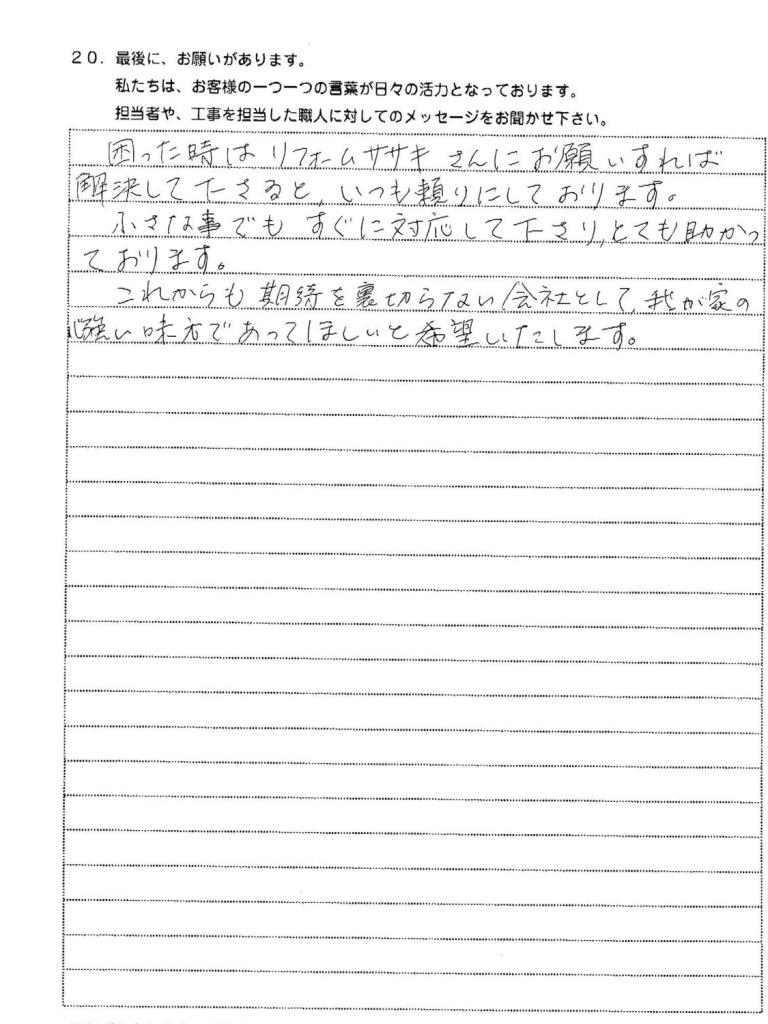 20．最後に、お願いがあります。
私たちは、お客様の一つ一つの言葉が日々の活力となっております。
担当者や、工事を担当した職人に対してのメッセージをお聞かせ下さい。
困った時は リフォームササキ さんにお願いすれば
解決して下さると、いつも頼りにしております。
小さな事でも すぐに対応して下さり、とても助かっ
ております。
これからも 期待を裏切らない会社として、我が家の
強い味方であってほしいと希望いたします。